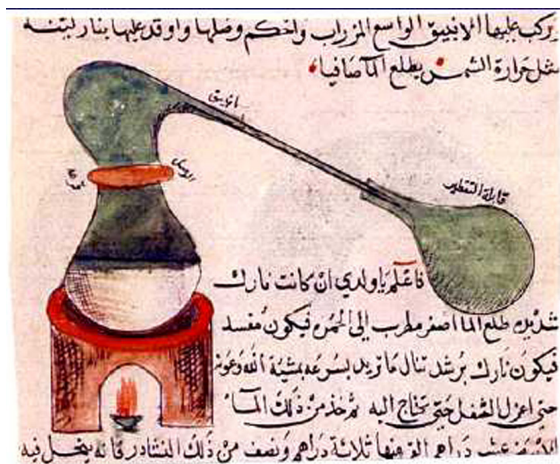 يركب عليها الانبيق الواسع المزراب واحكم وصلها واوقد عليها بنار لينه
مثل حرارة الشمس يطلع الما صافيا
انبيق
الوصل
قابلة التقطير
فاعلم يا ولدي ان كانت نارك
شديده طلع الما اصفر مطرب الى الحمره فيكون مفسد
فيكون نارك برشد تنال ما تريد بسرعه بمشية الله وعونه
حتى اعزل الثفل حتى تحتاج اليه ثم خذ من ذلك الما
عشر دراهم الق فيها ثلاثة دراهم ونصف من ذلك النشادر فانه ينحل فيه